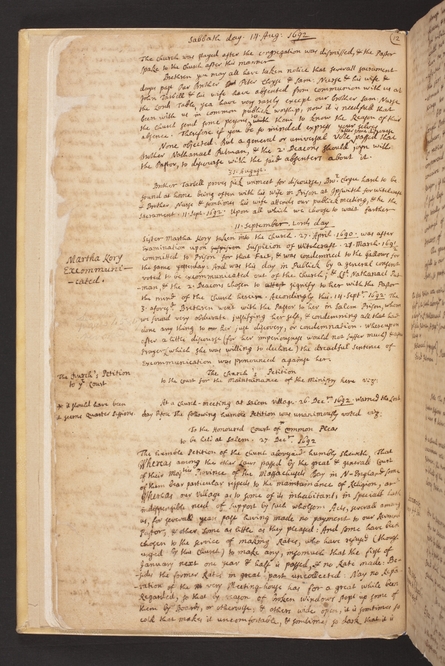 Sabbath day. 14. Aug. 1692.
12
The church was stayed after the congregation was dismissed, & the Pastor
spake to the church after this manner
Brethren you may all have taken notice that severall sacrament
days past our Brother Peter Cloyse & Sam: Nurse & his wife &
John Tarbell & his wife have absented from communion with us at
the Lords Table, yea have very rarely except our brother Sam: Nurse
been with us in common publick worship, now it is needfull that
the church send some persons to them to know the Reason of their
absence. Therefore if you be so minded express your selves.
None objected. But a general or universal Vote passed that
Brother Nathanael Putman, & the 2 Deacons should join with
the Pastor, to discourse with the said absenters about it.
31. August.
Brother Tarbell proves sick, unmeet for discourse, Bro: Cloyse hard to be
found at home being often with his wife in Prison at Ipswitch for witchcraft
& Brother Nurse & sometimes his wife attends our publick meeting, & he the
sacrament 11. Sept. 1692. Upon all which we choose to wait further
11. September. Lords day
Sister Martha Kory taken into the church 27. April. 1690. was after
Examination upon suspicion of Witchcraft
committed to Prison for that fact, & was condemned to the gallows for
the same yesterday: And was this day in Publick by a general consent
voted to be excommunicated out of the church; & Nathanael Put-
man, & the 2. Deacons chosen to signify to her with the Pastor
the mind of the church herein. Accordingly this 14. Sept. 1692. The
3 aforesd Brethren went with the Pastor to her in Salem Prison, whom
we found very obdurate justifying her self, & condemning all that had
done any thing to her just discovery, or condemnation. Whereupon
after a little discourse (for her imperiousness would not suffer much) & after
prayer, which she was willing to decline) the dreadful sentence of
Excommunication was pronounced against her.
Martha Kory
Excommuni-
-cated.
The Church's Petition
to ye Court
The Church's Petition
to the Court for the Maintainance of the Ministry here viz.
At a church-meeting at Salem village 26. Decr. 1692 warned the Lords
day before the following humble Petition was unanimously voted viz.
To the Honoured Court of common Pleas
to be held at Salem. 27. Decr. 1692
The humble Petition of the church abovesd humbly sheweth, That
Whereas among the other Laws passed by the great & general Court
of their Majties Province of the Massachusets Bay in N-England, some
of them bear particular respect to the maintainance of Religion, and
Whereas our Village as to some of its inhabitants, in special hath
indispensible need of support by such wholsom Acts, severall among
us, for several years past having made no payment to our Revered
Pastor, & other some as little as they pleased: And some have been
chosen to the service of making Rates, who have refused (though
urged by the church) to make any, insomuch that the first of
January next one year & half is passed, & no Rate made: Be-
sides the former Rates in great part uncollected. Nay no Repa-
ration of the very Meeting-house has for a great while been
Regarded, so that by reason of broken windows stopt up some of
them by Boards, or otherwise & others wide open, it is sometimes so
cold that makes it uncomfortable, & sometimes so dark that it is